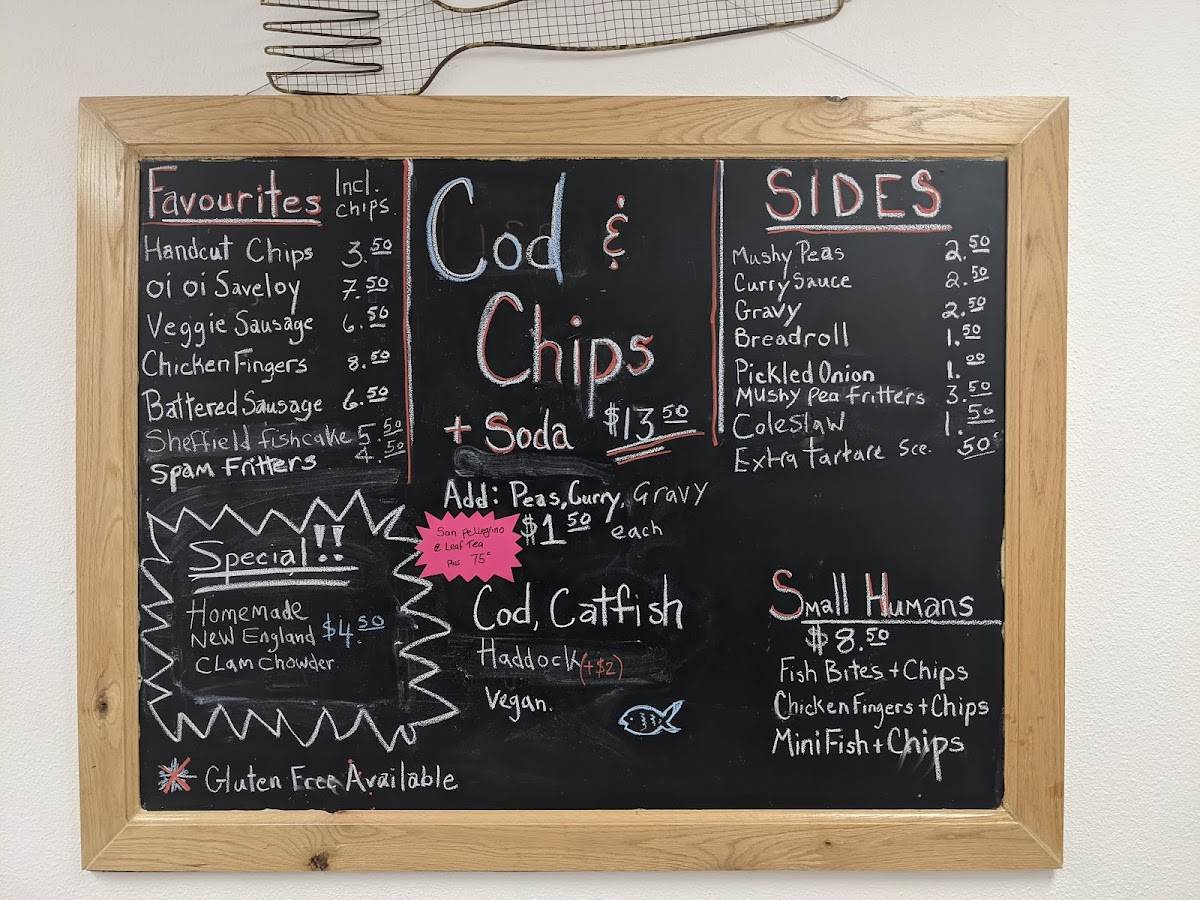 Favourites Incl. chips.
Handcut Chips 3.50
oi oi Saveloy 7.50
Veggie Sausage 6.50
Chicken Fingers 8.50
Battered Sausage 6.50
Sheffield fishcake 5.50
Spam Fritters 4.50
Special!!
Homemade
New England $4.50
Clam Chowder
Gluten Free Available
Cod &
Chips
+ Soda $13.50
Add: Peas, Curry, Gravy
$1.50 each
San pellegrino
& Leaf Tea
Plus 75c
Cod, Catfish
Haddock (+$2)
Vegan.
SIDES
Mushy Peas 2.50
Curry Sauce 2.50
Gravy 2.50
Breadroll 1.50
Pickled Onion 1.00
Mushy pea Fritters 3.50
Coleslaw 1.50
Extra tartare sce. .50c
Small Humans
$8.50
Fish Bites + Chips
Chicken Fingers + Chips
Mini Fish + Chips